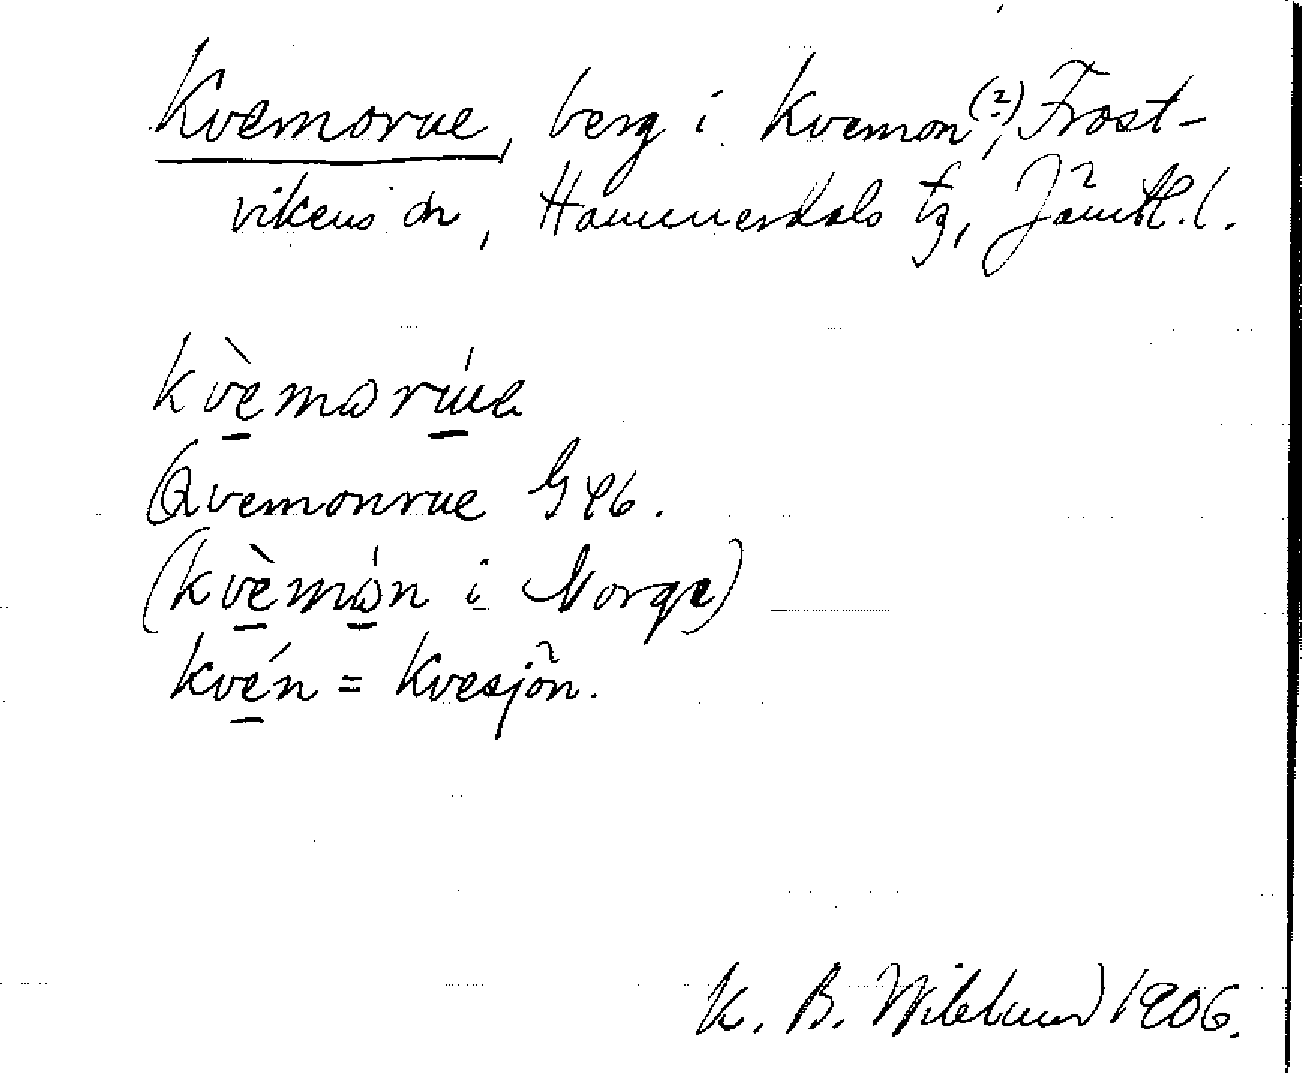 Kvemorue, berg i Kvemon(?), Frost-
vikens sn, Hammerdals tg, Jämtl. l.
kvèmorúe
Qvemonrue G96.
(kvèmón i Norge)
kvén = Kvesjön.
K. B. Wiklund 1906.